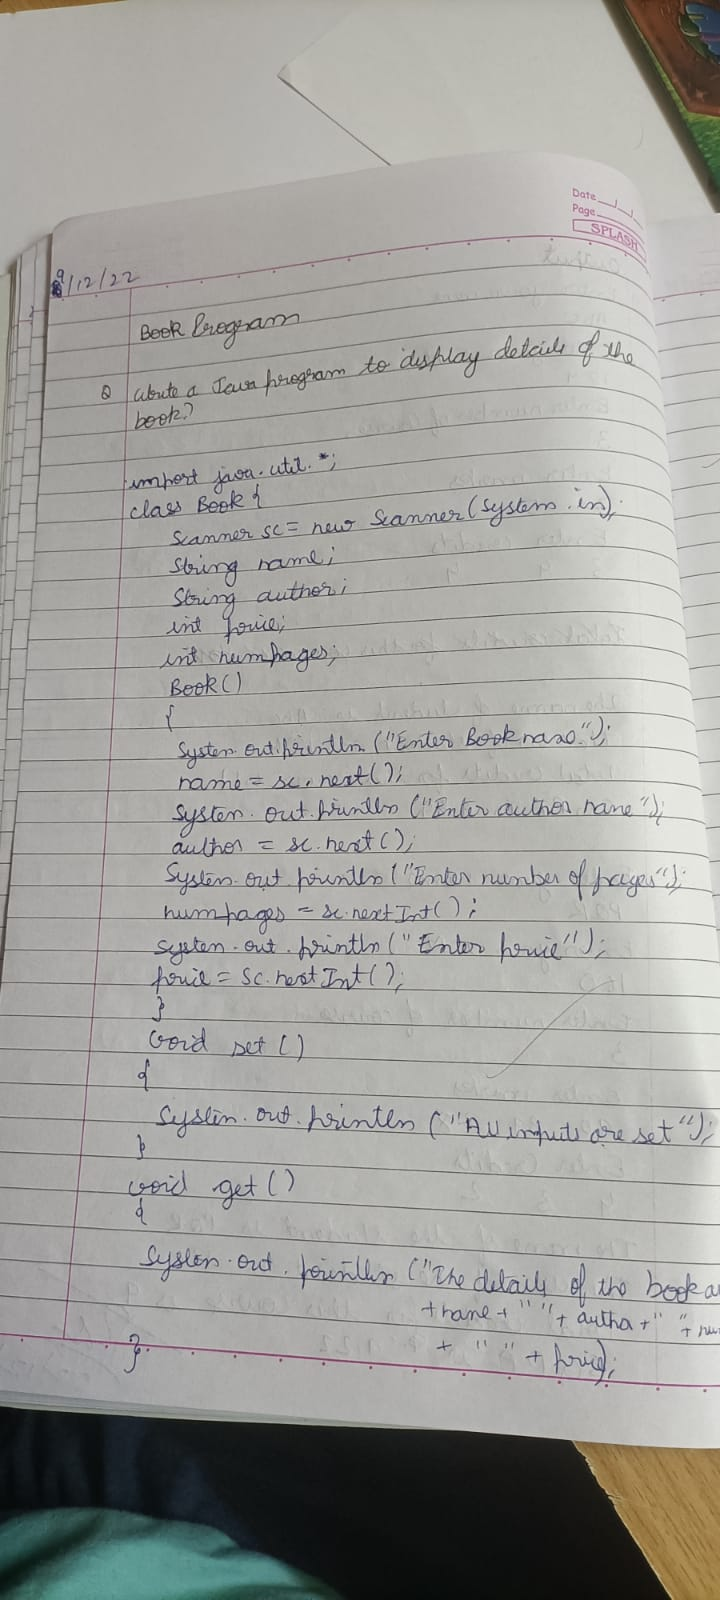 Date
Page
SPLASH
9/12/22
Book Program
Q Write a Java program to display details of the
book?
import java.util.*;
class Book {
Scanner sc = new Scanner(System.in);
String name;
String author;
int price;
int numpages;
Book()
{
System.out.println("Enter Book name");
name = sc.next();
System.out.println("Enter author name");
author = sc.next();
System.out.println("Enter number of pages");
numpages = sc.nextInt();
System.out.println("Enter price");
price = sc.nextInt();
}
void set()
{
System.out.println("All inputs are set");
}
void get()
{
System.out.println("The details of the book
+name+" "+ author+" "+
+ " " + price);
}